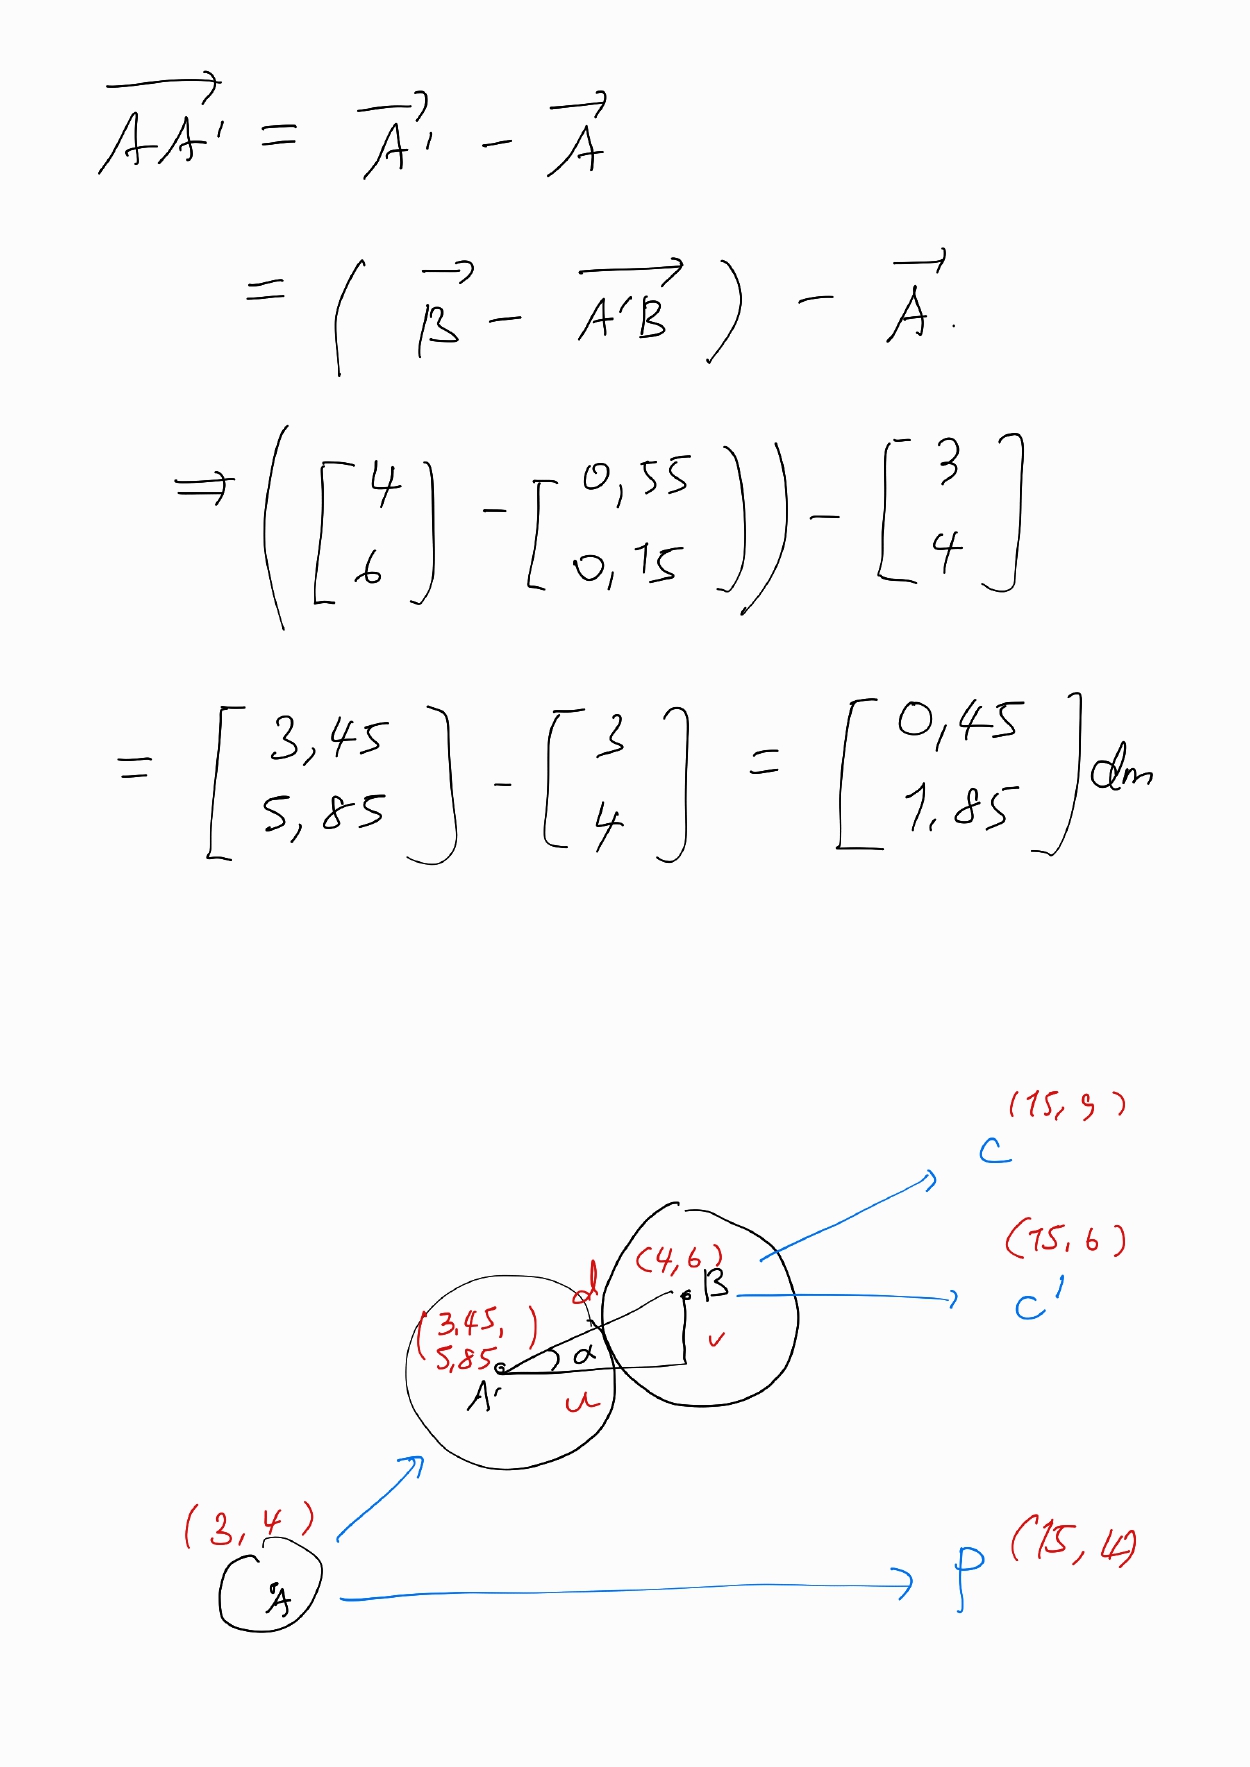 AA' = A' - A
= ( B - A'B ) - A.
⇒ ( [ 4 6 ] - [ 0,55 0,15 ] ) - [ 3 4 ]
= [ 3,45 5,85 ] - [ 3 4 ] = [ 0,45 1,85 ] dm
(15, 9)
C
(15, 6)
C'
(4,6)
B
d
(3.45, 5,85)
α
v
A'
u
(3, 4)
A
P (15, 4)